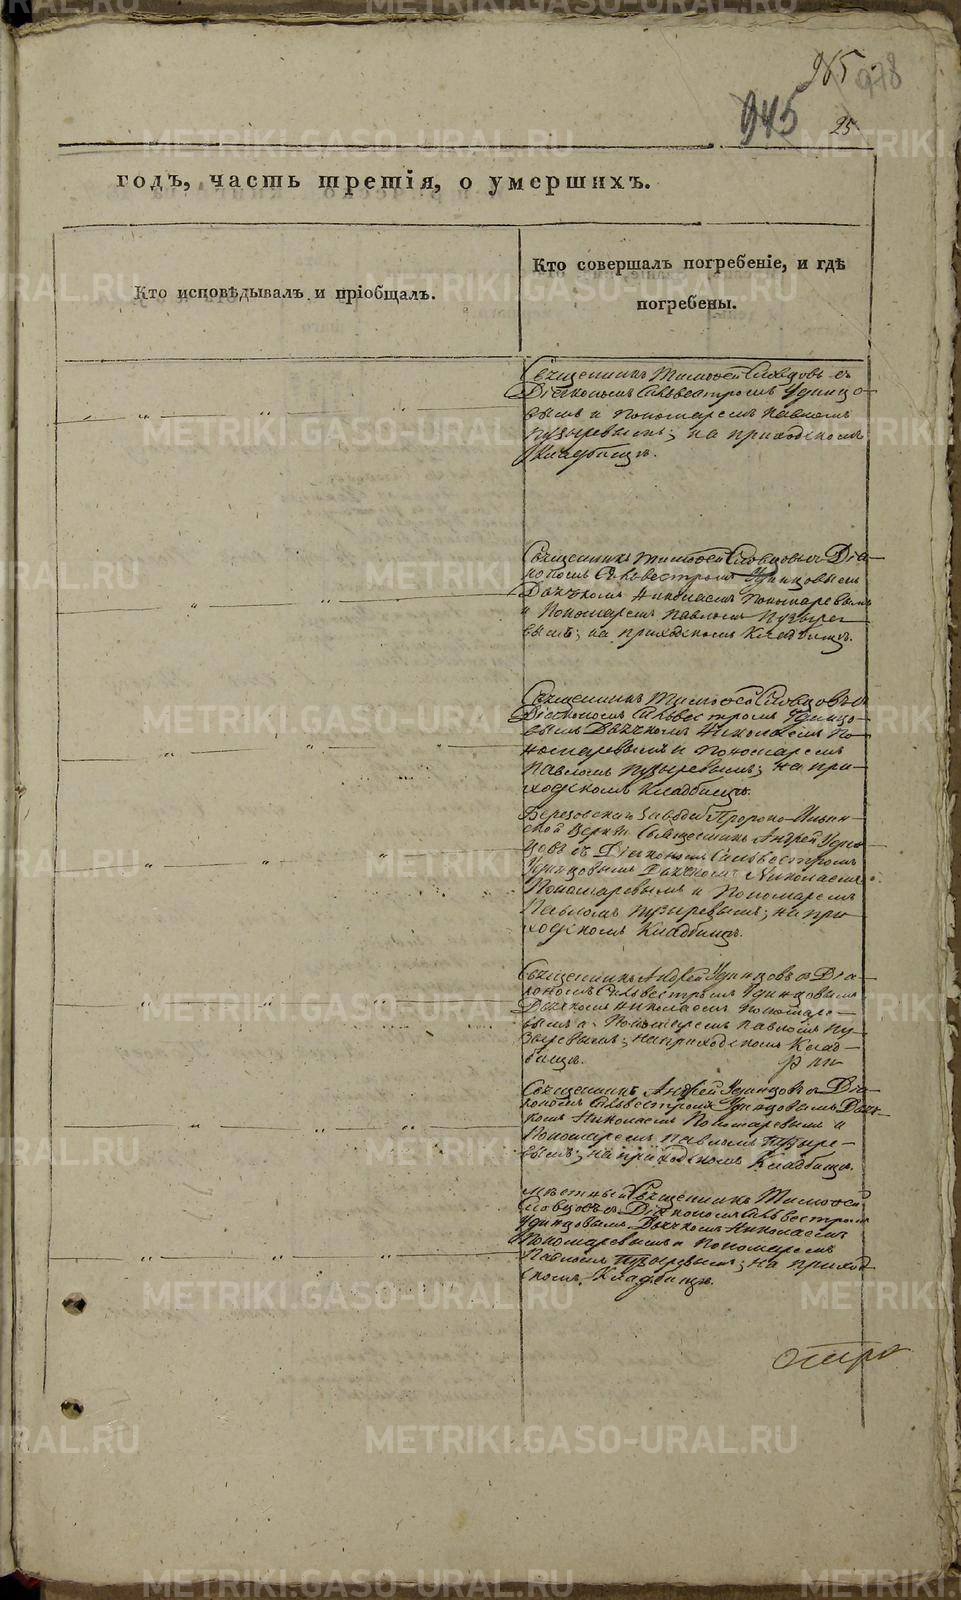 965
978
945
25
годъ, часть третія, о умершихъ.
Кто исповѣдывалъ и пріобщалъ.
Кто совершалъ погребеніе, и гдѣ
погребены.
Священникъ Тимофей Словцовъ съ
Діакономъ Сильвестромъ Удинцо-
вымъ и Пономаремъ Павломъ
Пузыревымъ; на приходскомъ
Кладбищѣ.
Священникъ Тимофей Словцовъ съ Діа-
кономъ Сильвестромъ Удинцовымъ
Дьячкомъ Николаемъ Пономаревымъ
и Пономаремъ Павломъ Пузыре-
вымъ; на приходскомъ Кладбищѣ.
Священникъ Тимофей Словцовъ съ
Діакономъ Сильвестромъ Удинцо-
вымъ Дьячкомъ Николаемъ По-
номаревымъ и Пономаремъ
Павломъ Пузыревымъ; на при-
ходскомъ Кладбищѣ.
Березовскаго завода Пророко-Ильин-
ской Церкви Священникъ Андрей Удин-
цовъ съ Діакономъ Сильвестромъ
Удинцовымъ Дьячкомъ Николаемъ
Пономаревымъ и Пономаремъ
Павломъ Пузыревымъ; на при-
ходскомъ Кладбищѣ.
Священникъ Андрей Удинцовъ съ Діа-
кономъ Сильвестромъ Удинцовымъ
Дьячкомъ Николаемъ Пономаре-
вымъ и Пономаремъ Павломъ Пу-
зыревымъ; на приходскомъ Клад-
бищѣ.
Священникъ Андрей Удинцовъ съ Діа-
кономъ Сильвестромъ Удинцовымъ Дьяч-
комъ Николаемъ Пономаревымъ и
Пономаремъ Павломъ Пузыре-
вымъ; на приходскомъ Кладбищѣ.
Мѣстный Священникъ Тимофей
Словцовъ съ Діакономъ Сильвестромъ
Удинцовымъ Дьячкомъ Николаемъ
Пономаревымъ и Пономаремъ
Павломъ Пузыревымъ; на приход-
скомъ Кладбищѣ.
METRIKI.GASO-URAL.RU